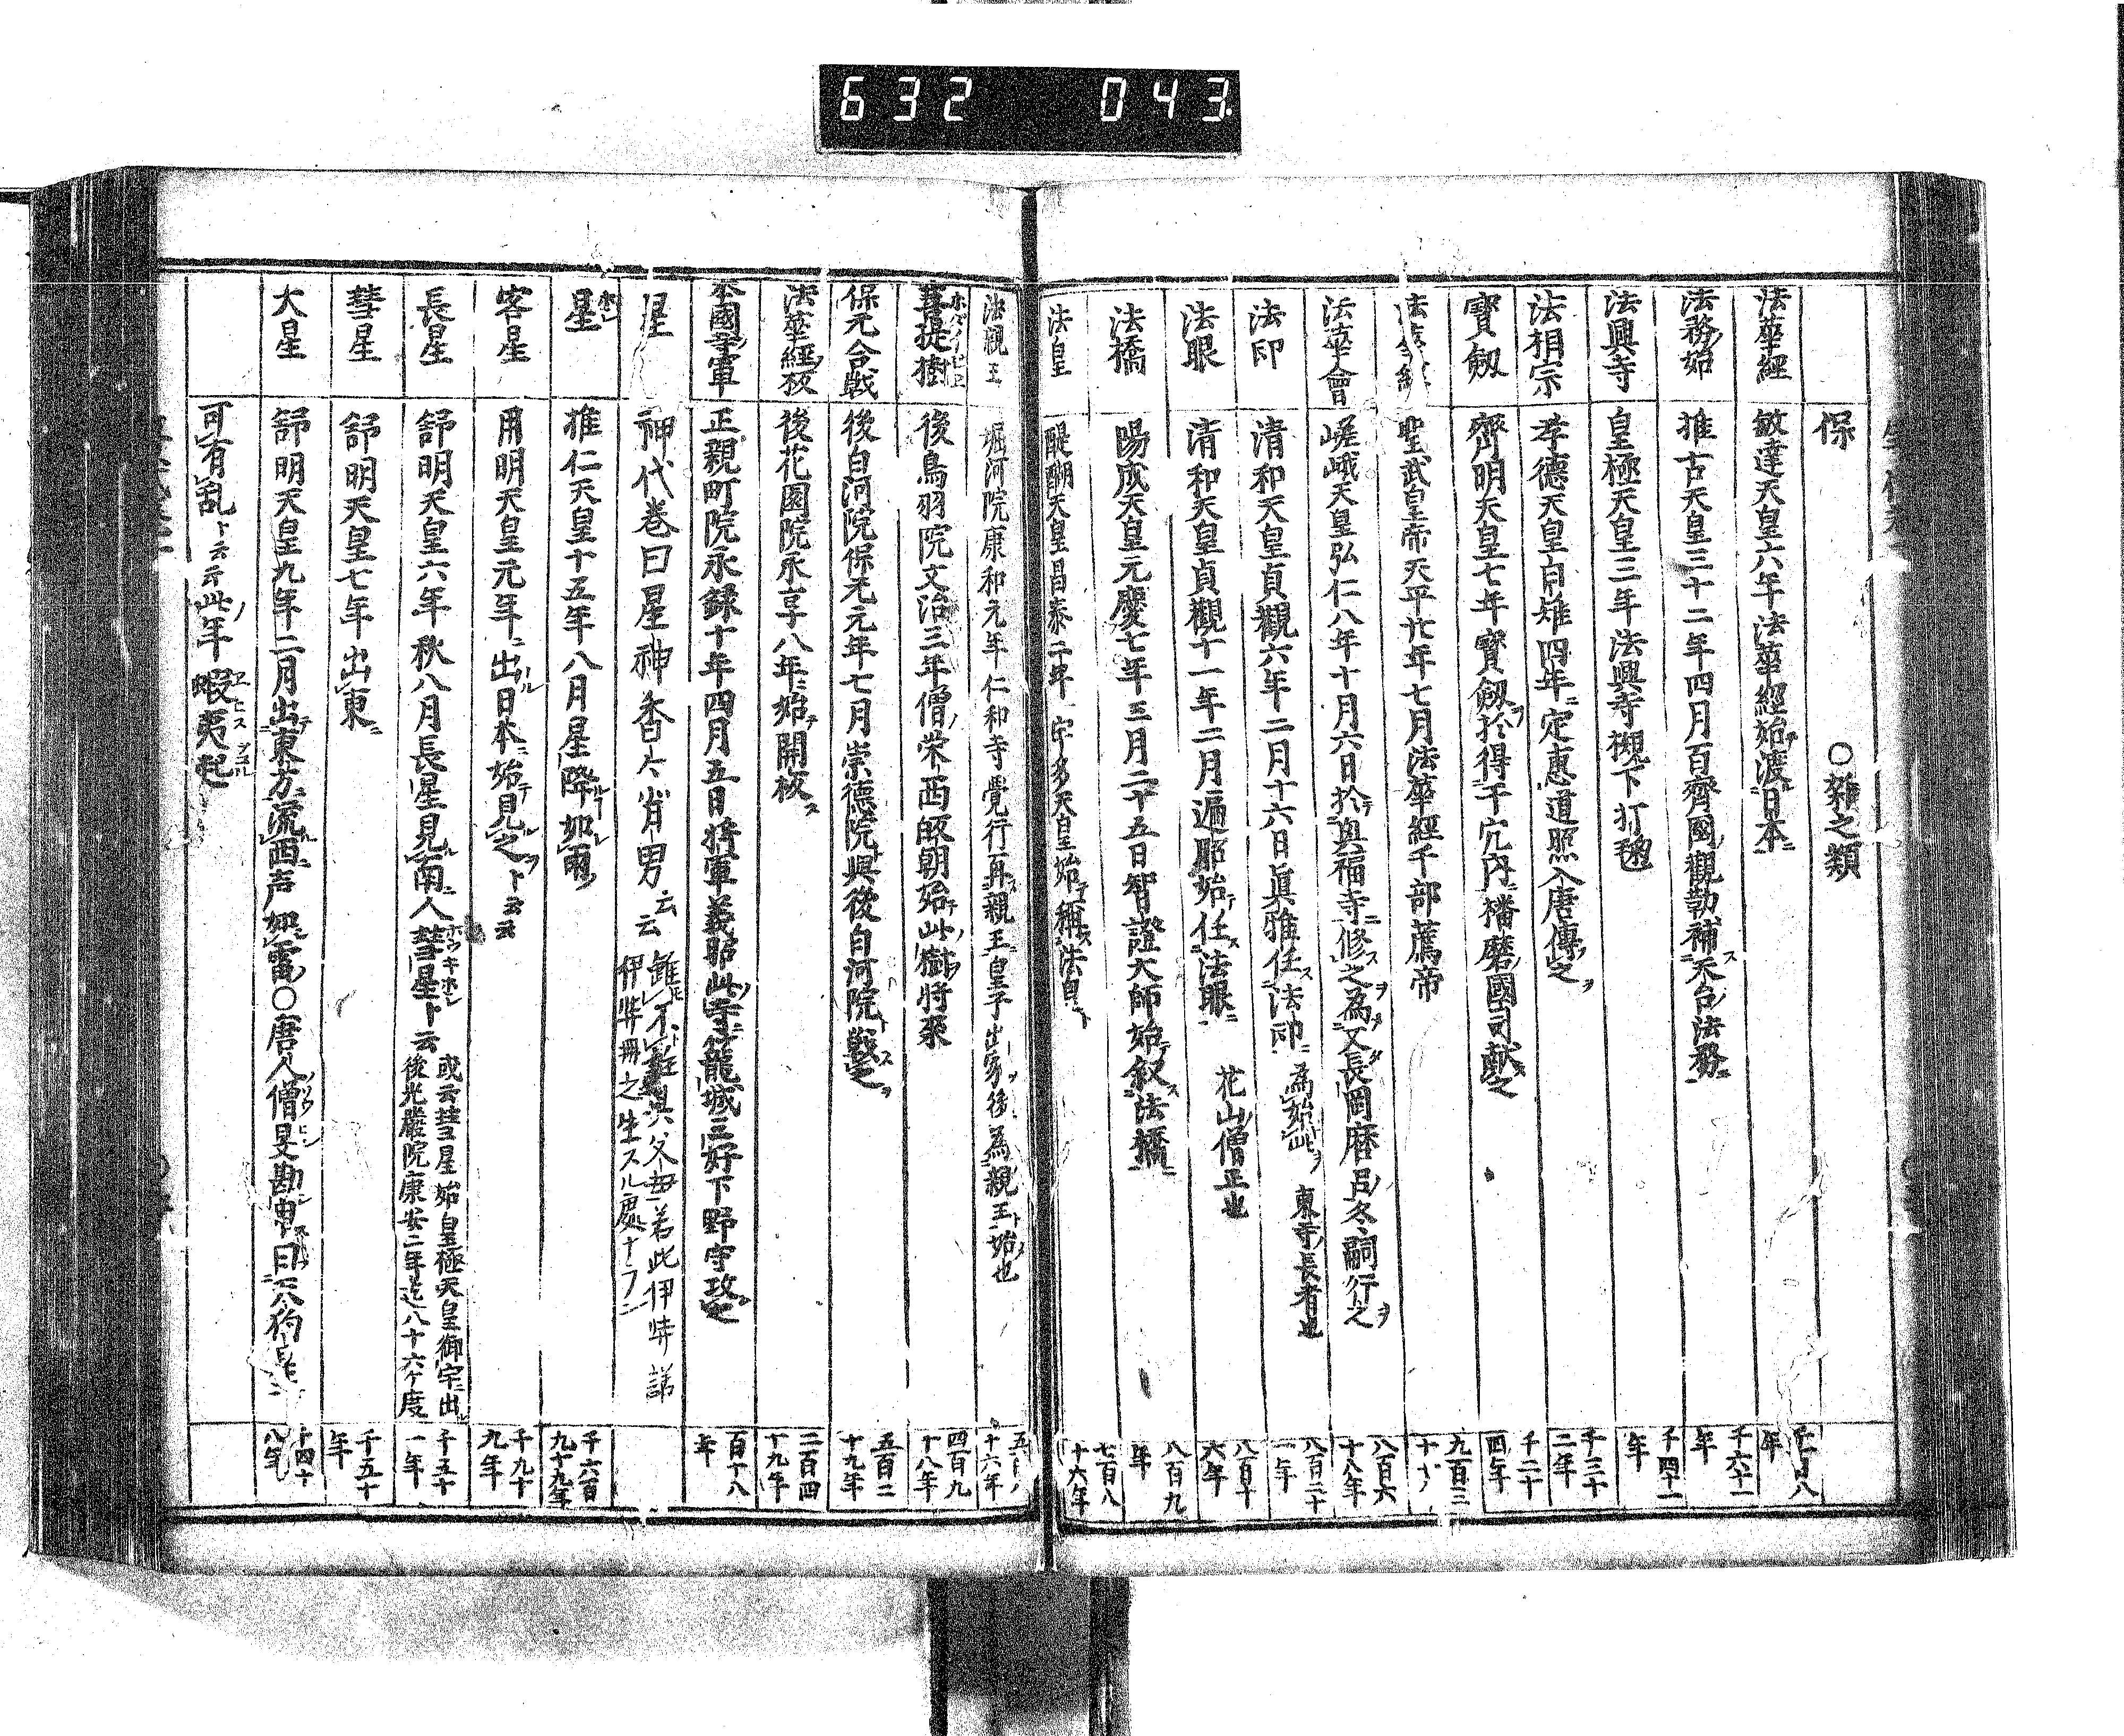 632 043
保 ○雜之類
法華經 敏達天皇六年法華經始テ渡日本ニ 千一百八年
法務ノ始 推古天皇三十二年四月百齊國ノ觀勒補ス天台法務ニ 千六十一年
法興寺 皇極天皇三年法興寺槻下打毬 千四十一年
法相宗 孝德天皇白雉四年ニ定惠道照入唐傳之ヲ 千三十二年
寶劔 齊明天皇七年寶劔ヲ於得干宍内ニ播磨ノ國司献之 千二十四年
聖武皇帝天平廿年七月法華經千部薦帝 九百三十
法華會 嵯峨天皇弘仁八年十月六日於テ與福寺ニ修ス之ヲ為メ又長岡磨呂ノ冬嗣行之ヲ 八百六十八年
法印 清和天皇貞觀六年二月十六日眞雅任ス法印ニ為始此ヲ 東寺ノ長者也 八百二十一年
法眼 清和天皇貞觀十一年二月遍昭始テ任ス法眼ニ 花山ノ僧正也 八百十六年
法橋 陽成天皇元慶七年三月二十五日智證大師始テ叙ス法橋ニ 八百九年
法皇 醍醐天皇昌泰二年 宇多天皇始テ稱ス法皇ト 七百八十六年
法親王 堀河院康和元年仁和寺覺行再ス親王ニ皇子出家ノ後為親王ト始ノ也 五十六年
菩提樹 後鳥羽院文治三年僧ノ栄西皈朝始テ此ノ樹ヲ將來 四百九十八年
保元合戰 後白河院保元元年七月崇德院ト與後白河院戰ス之ヲ 五百二十九年
法華經ノ板 後花園院永享八年ニ始テ開板ス 二百四十九年
本國寺軍 正親町院永録十年四月五日將軍義昭此ノ寺ニ籠城三好下野守攻之 百十八年
星 神代巻曰星神香々背男云云 雖不註其父母ヲ若此伊弉諾
伊弉册之生スル處ナラン
星 推仁天皇十五年八月星降ルコト如シ雨ノ 千六百九十九年
客星 用明天皇元年ニ出ル日本ニ始テ見ル之ヲト云云 千九十九年
長星 舒明天皇六年秋八月長星見ル南ニ人彗星ト云 或云彗星始皇極天皇御宇ニ出
後光嚴院康安二年迄八十六ケ度 千五十一年
彗星 舒明天皇七年出東ニ 千五十年
大星 舒明天皇九年二月出テ東方流西ニ声如シ雷ノ○唐人僧旻勘申曰天狗 千四十八年
可有乱ト云云此ノ年蝦夷起ル